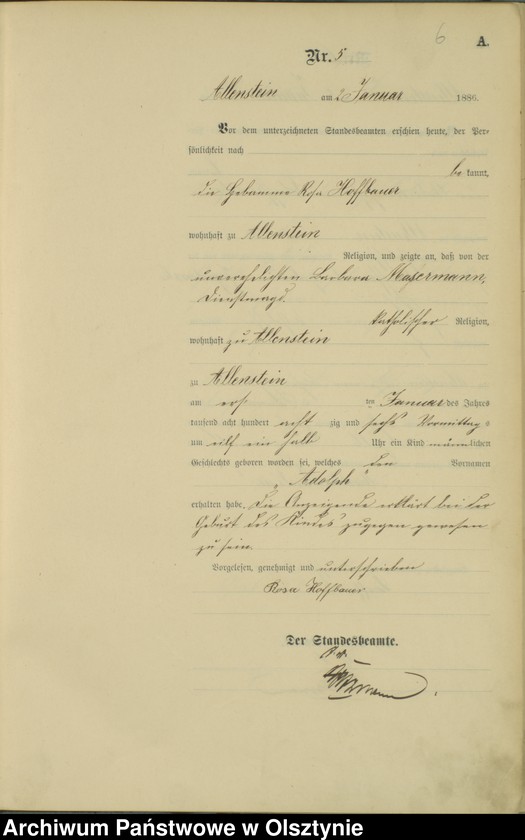 6
A.
Nr. 5
Allenstein am 2 Januar 1886.
Vor dem unterzeichneten Standesbeamten erschien heute, der Per-
sönlichkeit nach
be kannt,
die Hebamme Rosa Hoffbauer
wohnhaft zu Allenstein
Religion, und zeigte an, daß von der
unverehelichten Barbara
Dienstmagd.
katholischer Religion,
wohnhaft zu Allenstein
zu Allenstein
am ers ten Januar des Jahres
tausend acht hundert acht zig und sechs Vormittag s
um elf ein halb Uhr ein Kind männ lichen
Geschlechts geboren worden sei, welches den Vornamen
"Adolph"
erhalten habe. Die Anzeigende erklärt bei der
Geburt des Kindes zugegen gewesen
zu sein.
Vorgelesen, genehmigt und unterschrieben
Rosa Hoffbauer
Der Standesbeamte.
Archiwum Państwowe w Olsztynie